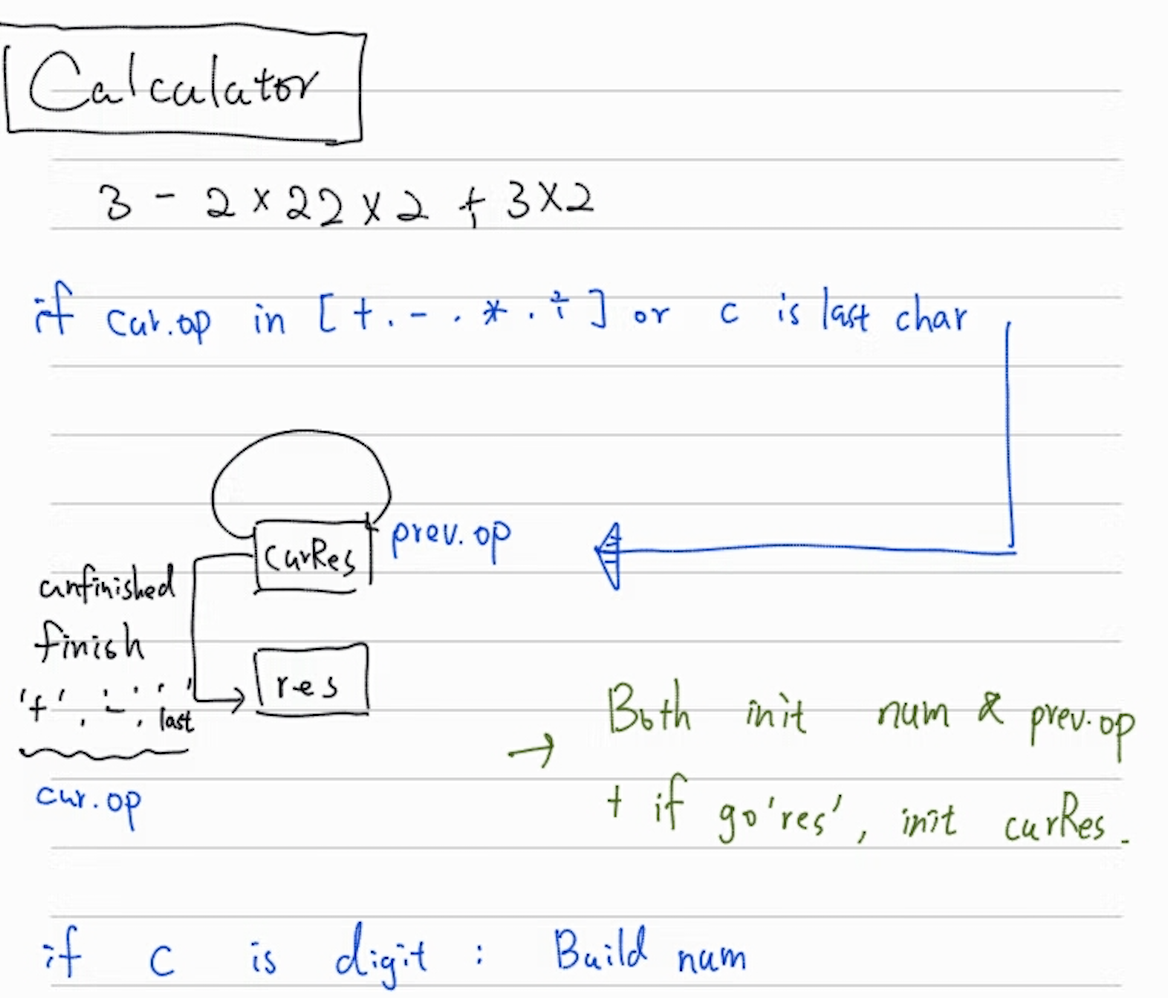 Calculator
3 - 2 × 22 × 2 + 3 × 2
if cur.op in [ + . - . * . ÷ ] or c is last char
curRes prev.op
unfinished
finish
res
'+' , '-' , 'last'
cur.op
→ Both init num & prev.op
+ if go 'res' , init curRes .
if c is digit : Build num